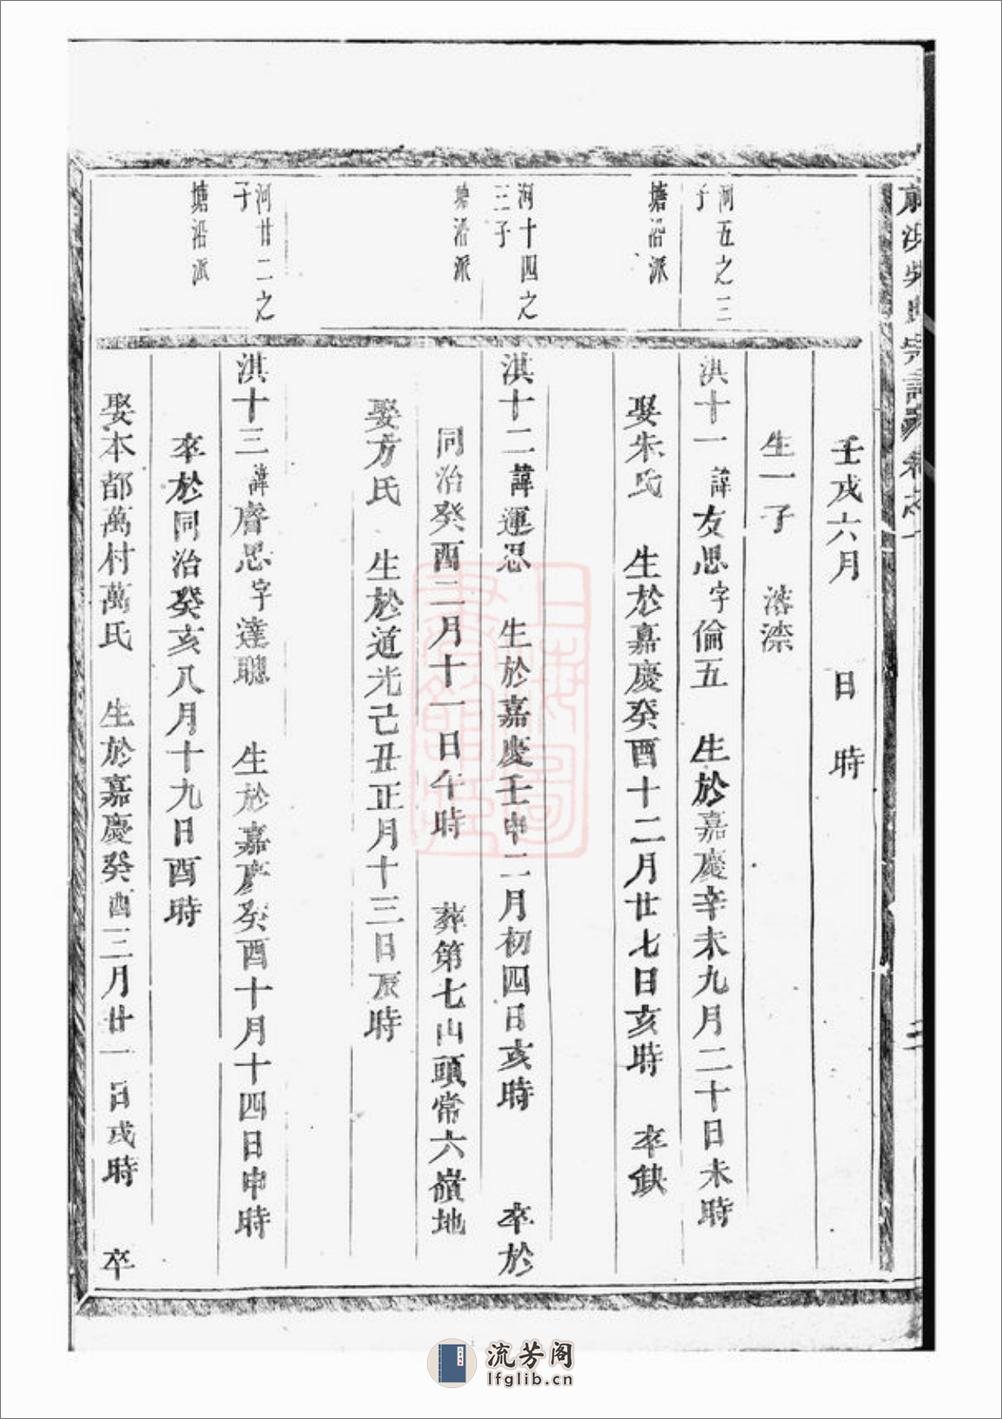 壬戌六月 日 時
生一子
河五之三
子
塘沿派
淇十一諱友思字倫五 生於嘉慶辛未九月二十日未時
娶朱氏 生於嘉慶癸酉十二月廿七日亥時 卒缺
河十四之
三子
塘沿派
淇十二諱運思 生於嘉慶壬申二月初四日亥時 卒於
同治癸酉二月十一日午時 葬第七山頭常六嶺地
娶方氏 生於道光己丑正月十三日辰時
河廿二之
子
塘沿派
淇十三諱睿思字達聰 生於嘉慶癸酉十月十四日申時
卒於同治癸亥八月十九日酉時
娶本都萬村萬氏 生於嘉慶癸酉三月廿一日戌時 卒
流芳阁
lfglib.cn